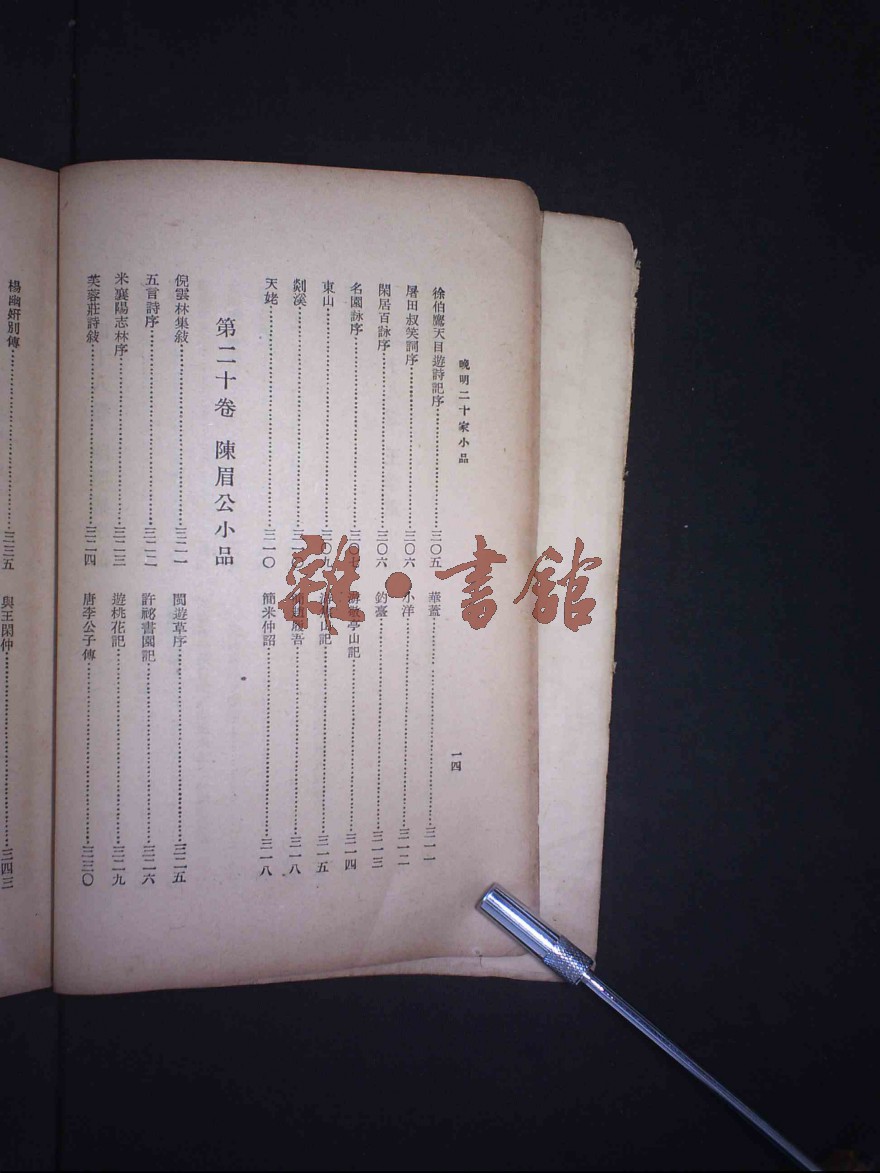 晚明二十家小品
一四
徐伯鷹天目遊詩記序……三〇五
屠田叔笑詞序……三〇六
閑居百詠序……三〇六
名園詠序……三〇七
東山……三〇九
剡溪……三一〇
天姥……三一〇
華蓋……三一一
小洋……三一二
釣臺……三一三
游敬亭山記……三一四
山記……三一五
吾……三一八
簡米仲詔……三一八
第二十卷 陳眉公小品
倪雲林集敍……三二一
五言詩序……三二二
米襄陽志林序……三二三
芙蓉莊詩敍……三二四
閩遊草序……三二五
許祕書園記……三二六
遊桃花記……三二九
唐李公子傳……三三〇
楊幽妍別傳……三三五
與王閑仲……三四三
雜·書館